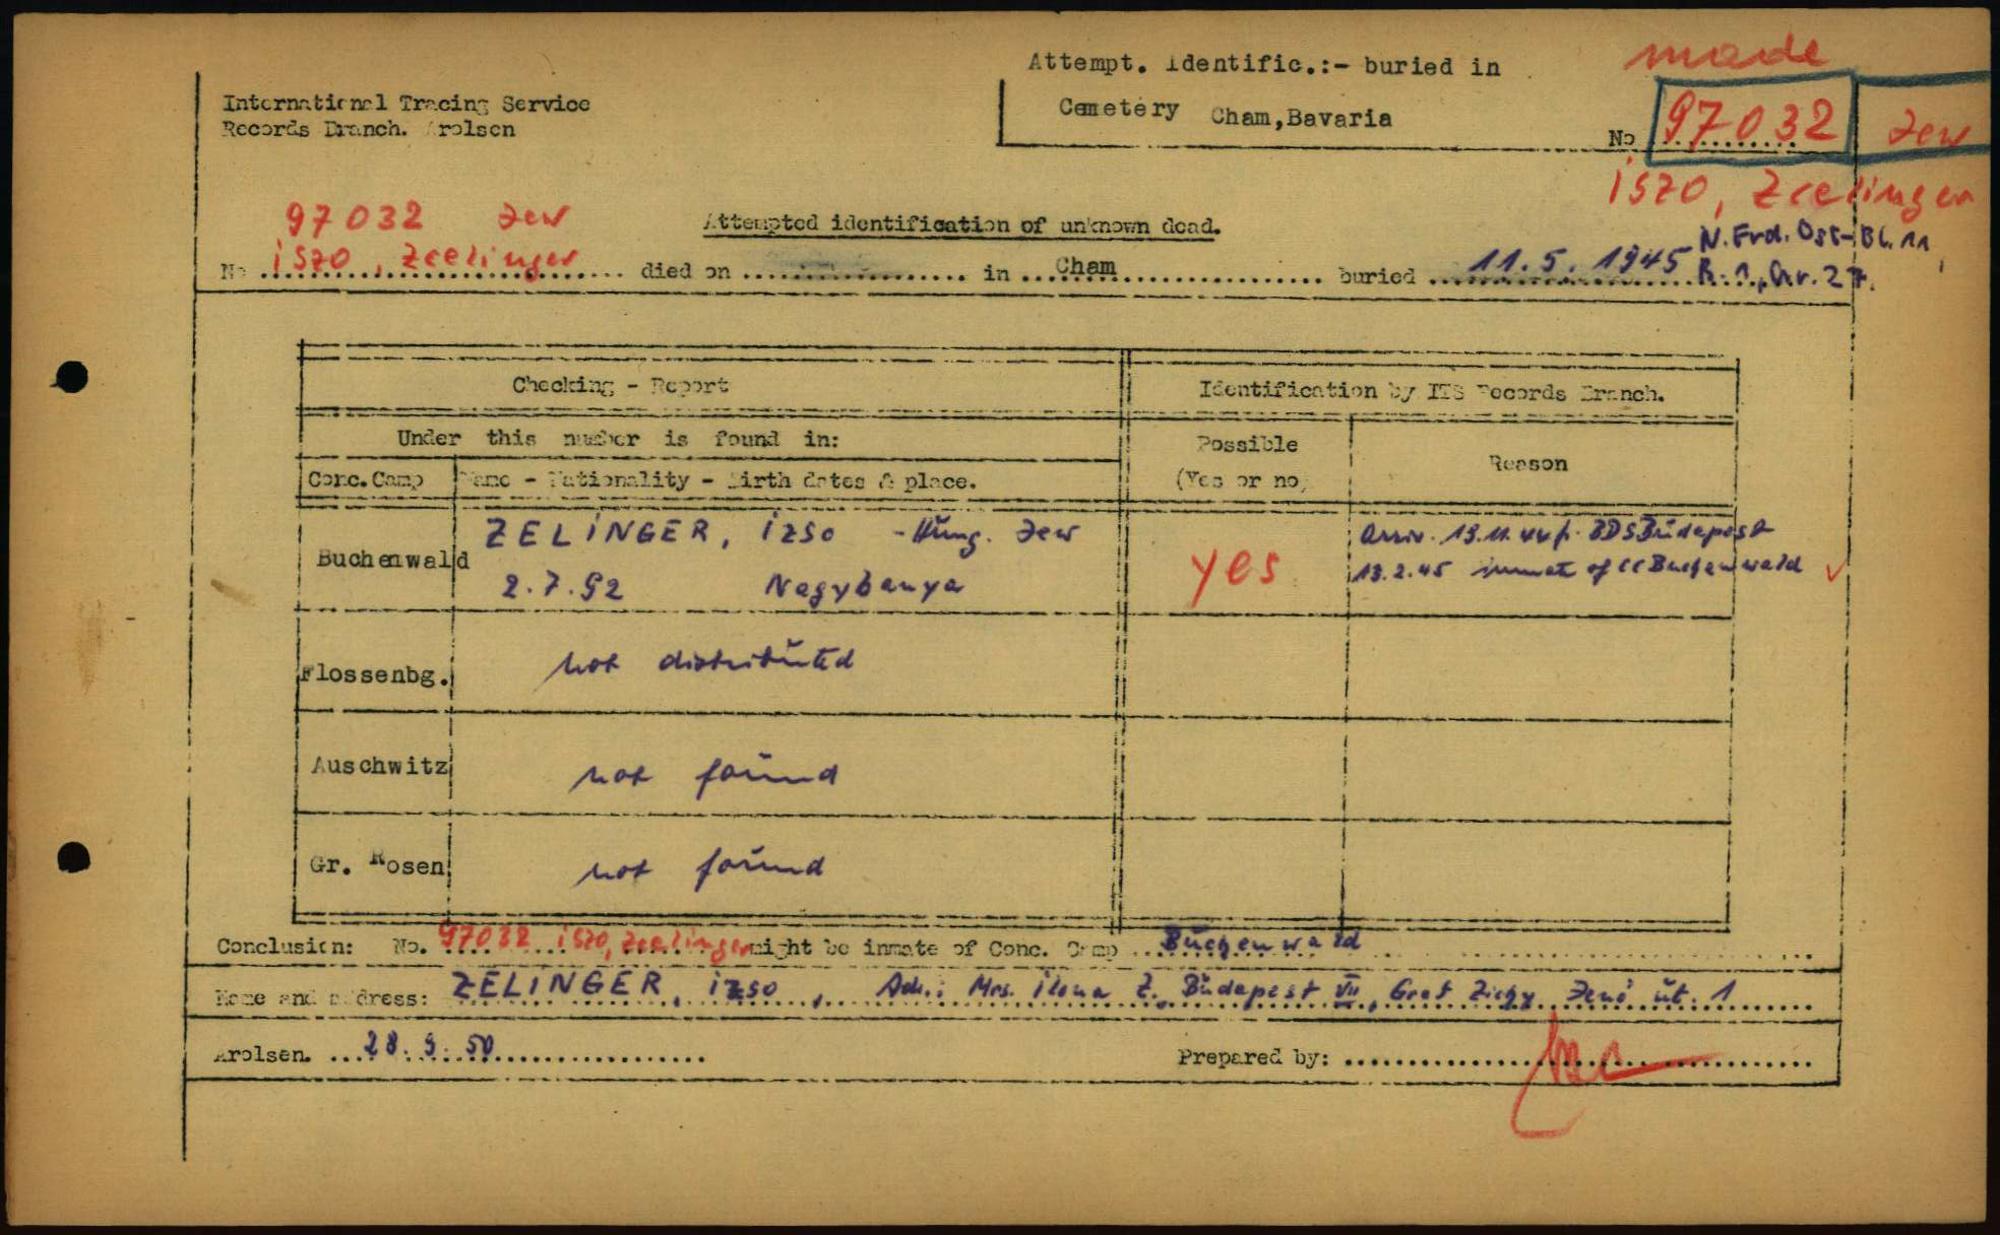 made
Attempt. Identific.:- buried in
International Tracing Service
Cemetery Cham, Bavaria
No 97032 Jew
Records Branch. Arolsen
iszo, Zeelinger
97032 Jew
Attempted identification of unknown dead.
N. Frd. Ost-Bl. 11,
No iszo, Zeelinger died on in Cham buried 11.5.1945 R. 1, Gr. 27.
Checking - Report
Identification by ITS Records Branch.
Under this number is found in:
Possible
(Yes or no)
Reason
Conc. Camp Name - Nationality - Birth dates & place.
Buchenwald
ZELINGER, izso - Hung. Jew
2.7.92 Nagybanya
yes
Arriv. 13.11.44 f. BDS Budapest
13.2.45 inmate of CC Buchenwald
Flossenbg. not distributed
Auschwitz not found
Gr. Rosen not found
Conclusion: No. 97032 iszo, Zeelinger might be inmate of Conc. Camp Buchenwald
Name and address: ZELINGER, izso, Adr.: Mrs. Ilona Z. Budapest VII, Graf Zichy Jenö út. 1
Arolsen. 28.9.50 Prepared by: